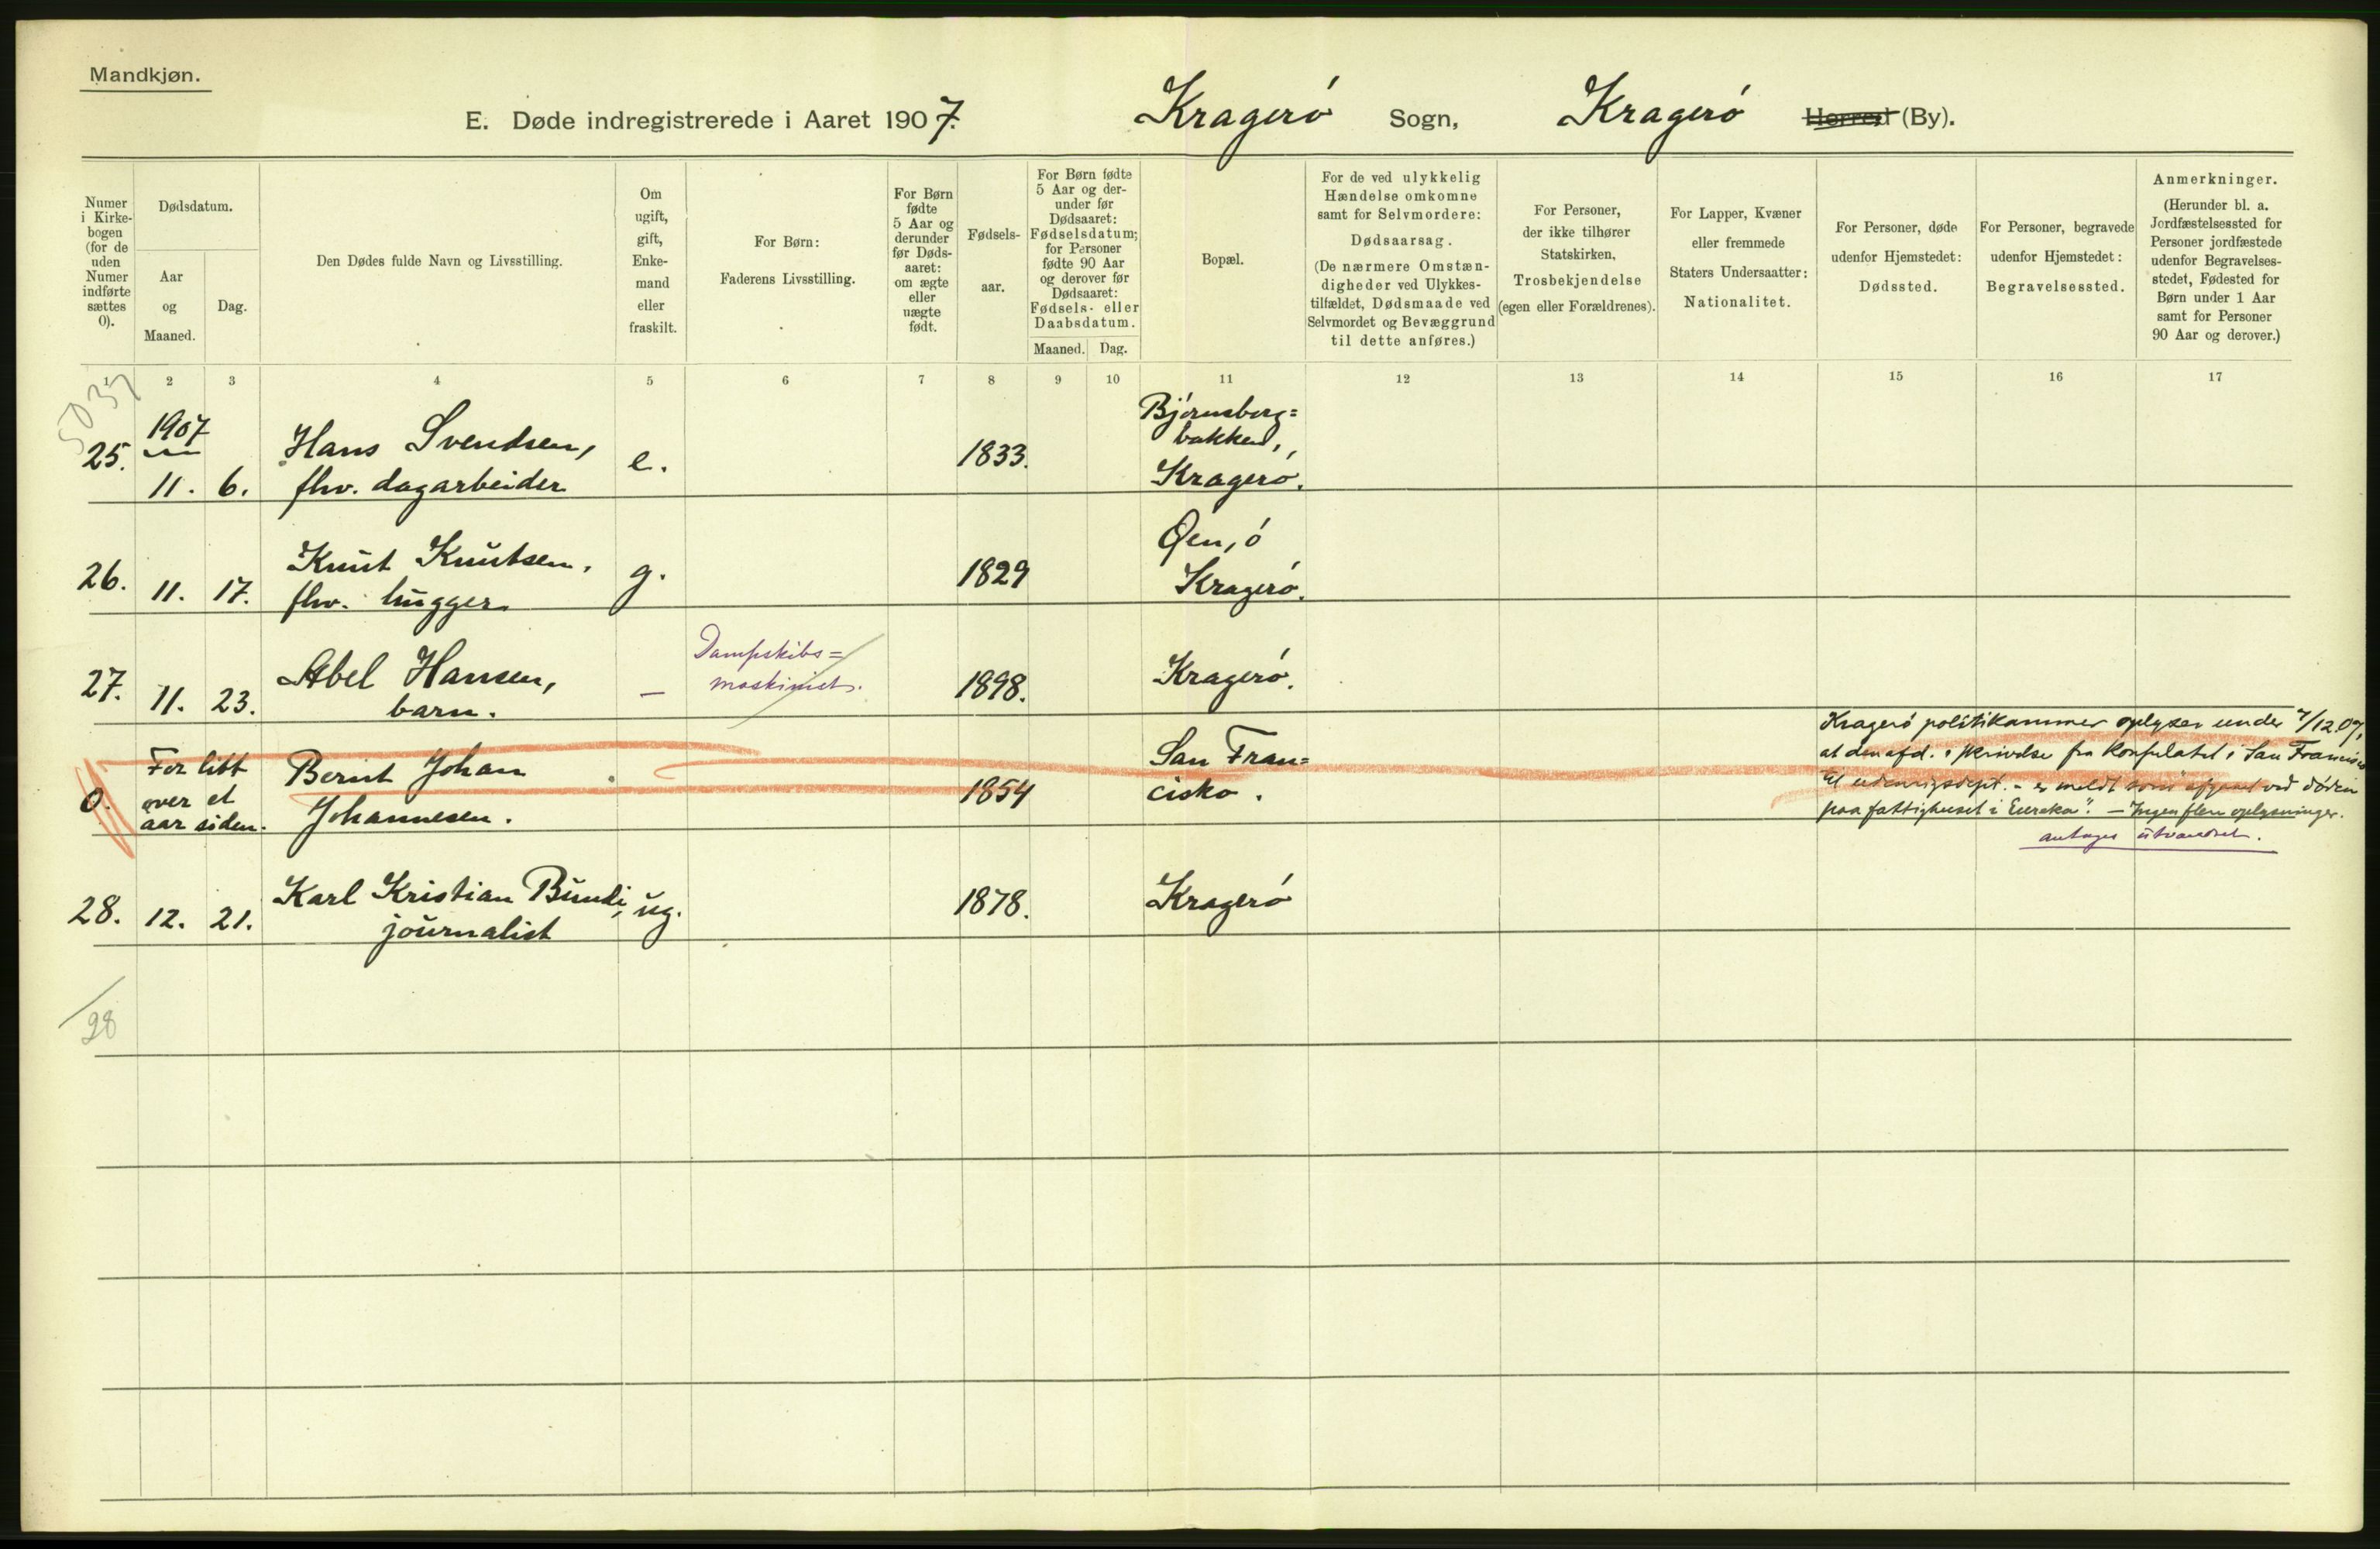 Mandkjøn.
E. Døde indregistrerede i Aaret 1907. Kragerö Sogn, Kragerö Herred (By).
Numer i Kirke-bogen (for de uden Numer indførte sættes 0).
Dødsdatum.
Aar og Maaned.
Dag.
Den Dødes fulde Navn og Livsstilling.
Om ugift, gift, Enke-mand eller fraskilt.
For Børn:
Faderens Livsstilling.
For Børn fødte 5 Aar og derunder før Døds-aaret: om ægte eller uægte født.
Fødsels-aar.
For Børn fødte 5 Aar og der-under før Dødsaaret: Fødselsdatum; for Personer fødte 90 Aar og derover før Dødsaaret: Fødsels- eller Daabsdatum.
Maaned. Dag.
Bopæl.
For de ved ulykkelig Hændelse omkomne samt for Selvmordere:
Dødsaarsag.
(De nærmere Omstæn-digheder ved Ulykkes-tilfældet, Dødsmaade ved Selvmordet og Bevæggrund til dette anføres.)
For Personer, der ikke tilhører Statskirken,
Trosbekjendelse
(egen eller Forældrenes).
For Lapper, Kvæner eller fremmede Staters Undersaatter:
Nationalitet.
For Personer, døde udenfor Hjemstedet:
Dødssted.
For Personer, begravede udenfor Hjemstedet:
Begravelsessted.
Anmerkninger.
(Herunder bl. a. Jordfæstelsessted for Personer jordfæstede udenfor Begravelses-stedet, Fødested for Børn under 1 Aar samt for Personer 90 Aar og derover.)
1 2 3 4 5 6 7 8 9 10 11 12 13 14 15 16 17
5037
25. 1907 11. 6. Hans Svendsen, e. 1833. Björnsberg=
flv. dagarbeider bakken,
Kragerö.
26. 11. 17. Knut Knutsen, g. 1829 Øen, ó
flv. hugger Kragerö.
27. 11. 23. Abel Hansen, — Dampskibs= 1898. Kragerö.
barn. maskinist.
0. For litt Bernt Johan 1854 San Fran=
over et Johannesen. cisko.
aar siden.
Kragerö politikammer oplyser under 7/12.07,
at den afd. i skrivelse fra konsulatet i San Francisco
til udenrigsdept. - er meldt som afgaaet ved döden
paa fattighuset i Eureka". — Ingen flere oplysninger.
antages utvandret.
28. 12. 21. Karl Kristian Bundi, ug. 1878. Kragerö
journalist
28